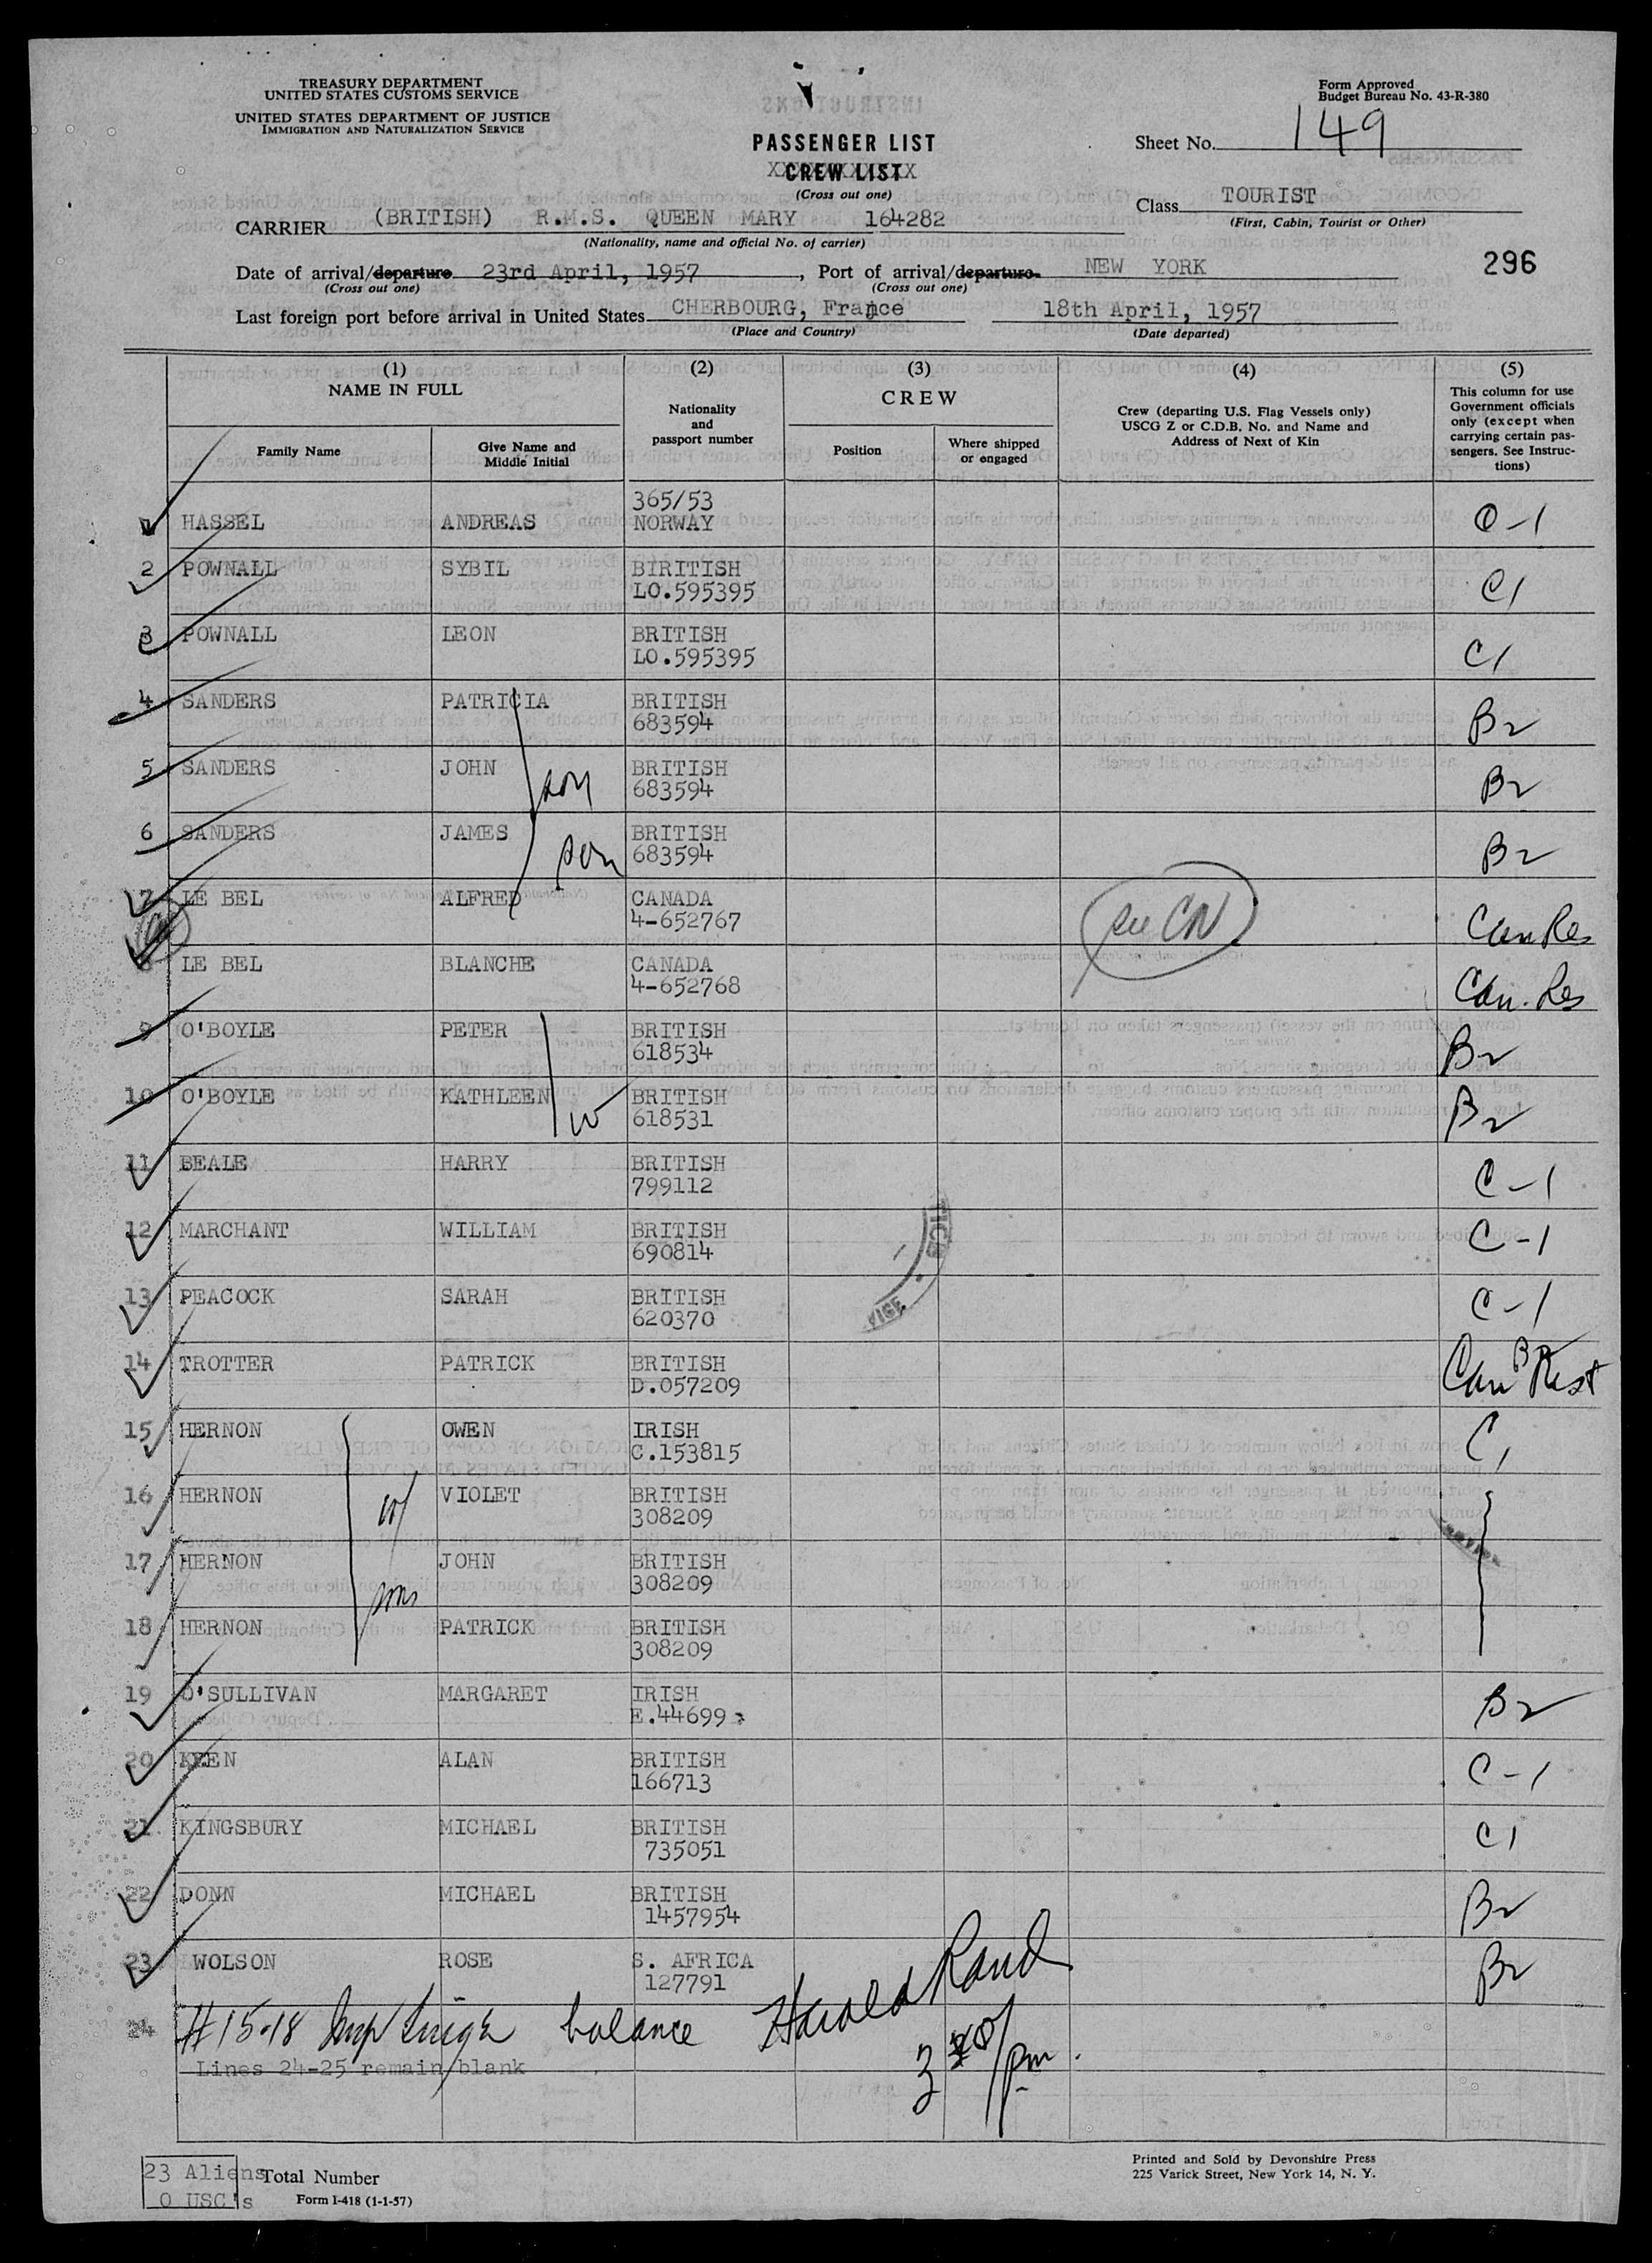 TREASURY DEPARTMENT
UNITED STATES CUSTOMS SERVICE
UNITED STATES DEPARTMENT OF JUSTICE
IMMIGRATION AND NATURALIZATION SERVICE
PASSENGER LIST
CREW LIST
(Cross out one)
Form Approved
Budget Bureau No. 43-R-380
Sheet No. 149
Class TOURIST
(First, Cabin, Tourist or Other)
CARRIER (BRITISH) R.M.S. QUEEN MARY 164282
(Nationality, name and official No. of carrier)
Date of arrival/departure 23rd April, 1957, Port of arrival/departure NEW YORK
(Cross out one) (Cross out one)
296
Last foreign port before arrival in United States CHERBOURG, France 18th April, 1957
(Place and Country) (Date departed)
(1) NAME IN FULL
Family Name
Give Name and Middle Initial
(2) Nationality and passport number
(3) CREW
Position
Where shipped or engaged
(4) Crew (departing U.S. Flag Vessels only) USCG Z or C.D.B. No. and Name and Address of Next of Kin
(5) This column for use Government officials only (except when carrying certain passengers. See Instructions)
1 HASSEL ANDREAS 365/53 NORWAY C-1
2 POWNALL SYBIL BIRITISH LO.595395 C1
3 POWNALL LEON BRITISH LO.595395 C1
4 SANDERS PATRICIA BRITISH 683594 B2
5 SANDERS JOHN son BRITISH 683594 B2
6 SANDERS JAMES son BRITISH 683594 B2
7 LE BEL ALFRED CANADA 4-652767 see CN Can Res
8 LE BEL BLANCHE CANADA 4-652768 Can. Res
9 O'BOYLE PETER BRITISH 618534 B2
10 O'BOYLE KATHLEEN W BRITISH 618531 B2
11 BEALE HARRY BRITISH 799112 C-1
12 MARCHANT WILLIAM BRITISH 690814 C-1
13 PEACOCK SARAH BRITISH 620370 C-1
14 TROTTER PATRICK BRITISH D.057209 Can
15 HERNON OWEN IRISH C.153815 C1
16 HERNON W VIOLET BRITISH 308209
17 HERNON sons JOHN BRITISH 308209
18 HERNON PATRICK BRITISH 308209
19 O'SULLIVAN MARGARET IRISH E.44699 B2
20 KEEN ALAN BRITISH 166713 C-1
21. KINGSBURY MICHAEL BRITISH 735051 C1
22 DONN MICHAEL BRITISH 1457954 B2
23 WOLSON ROSE S. AFRICA 127791 B2
24 #15-18 balance Harold Rand
Lines 24-25 remain blank
pm.
23 Aliens
0 USC's
Total Number
Form I-418 (1-1-57)
Printed and Sold by Devonshire Press
225 Varick Street, New York 14, N. Y.